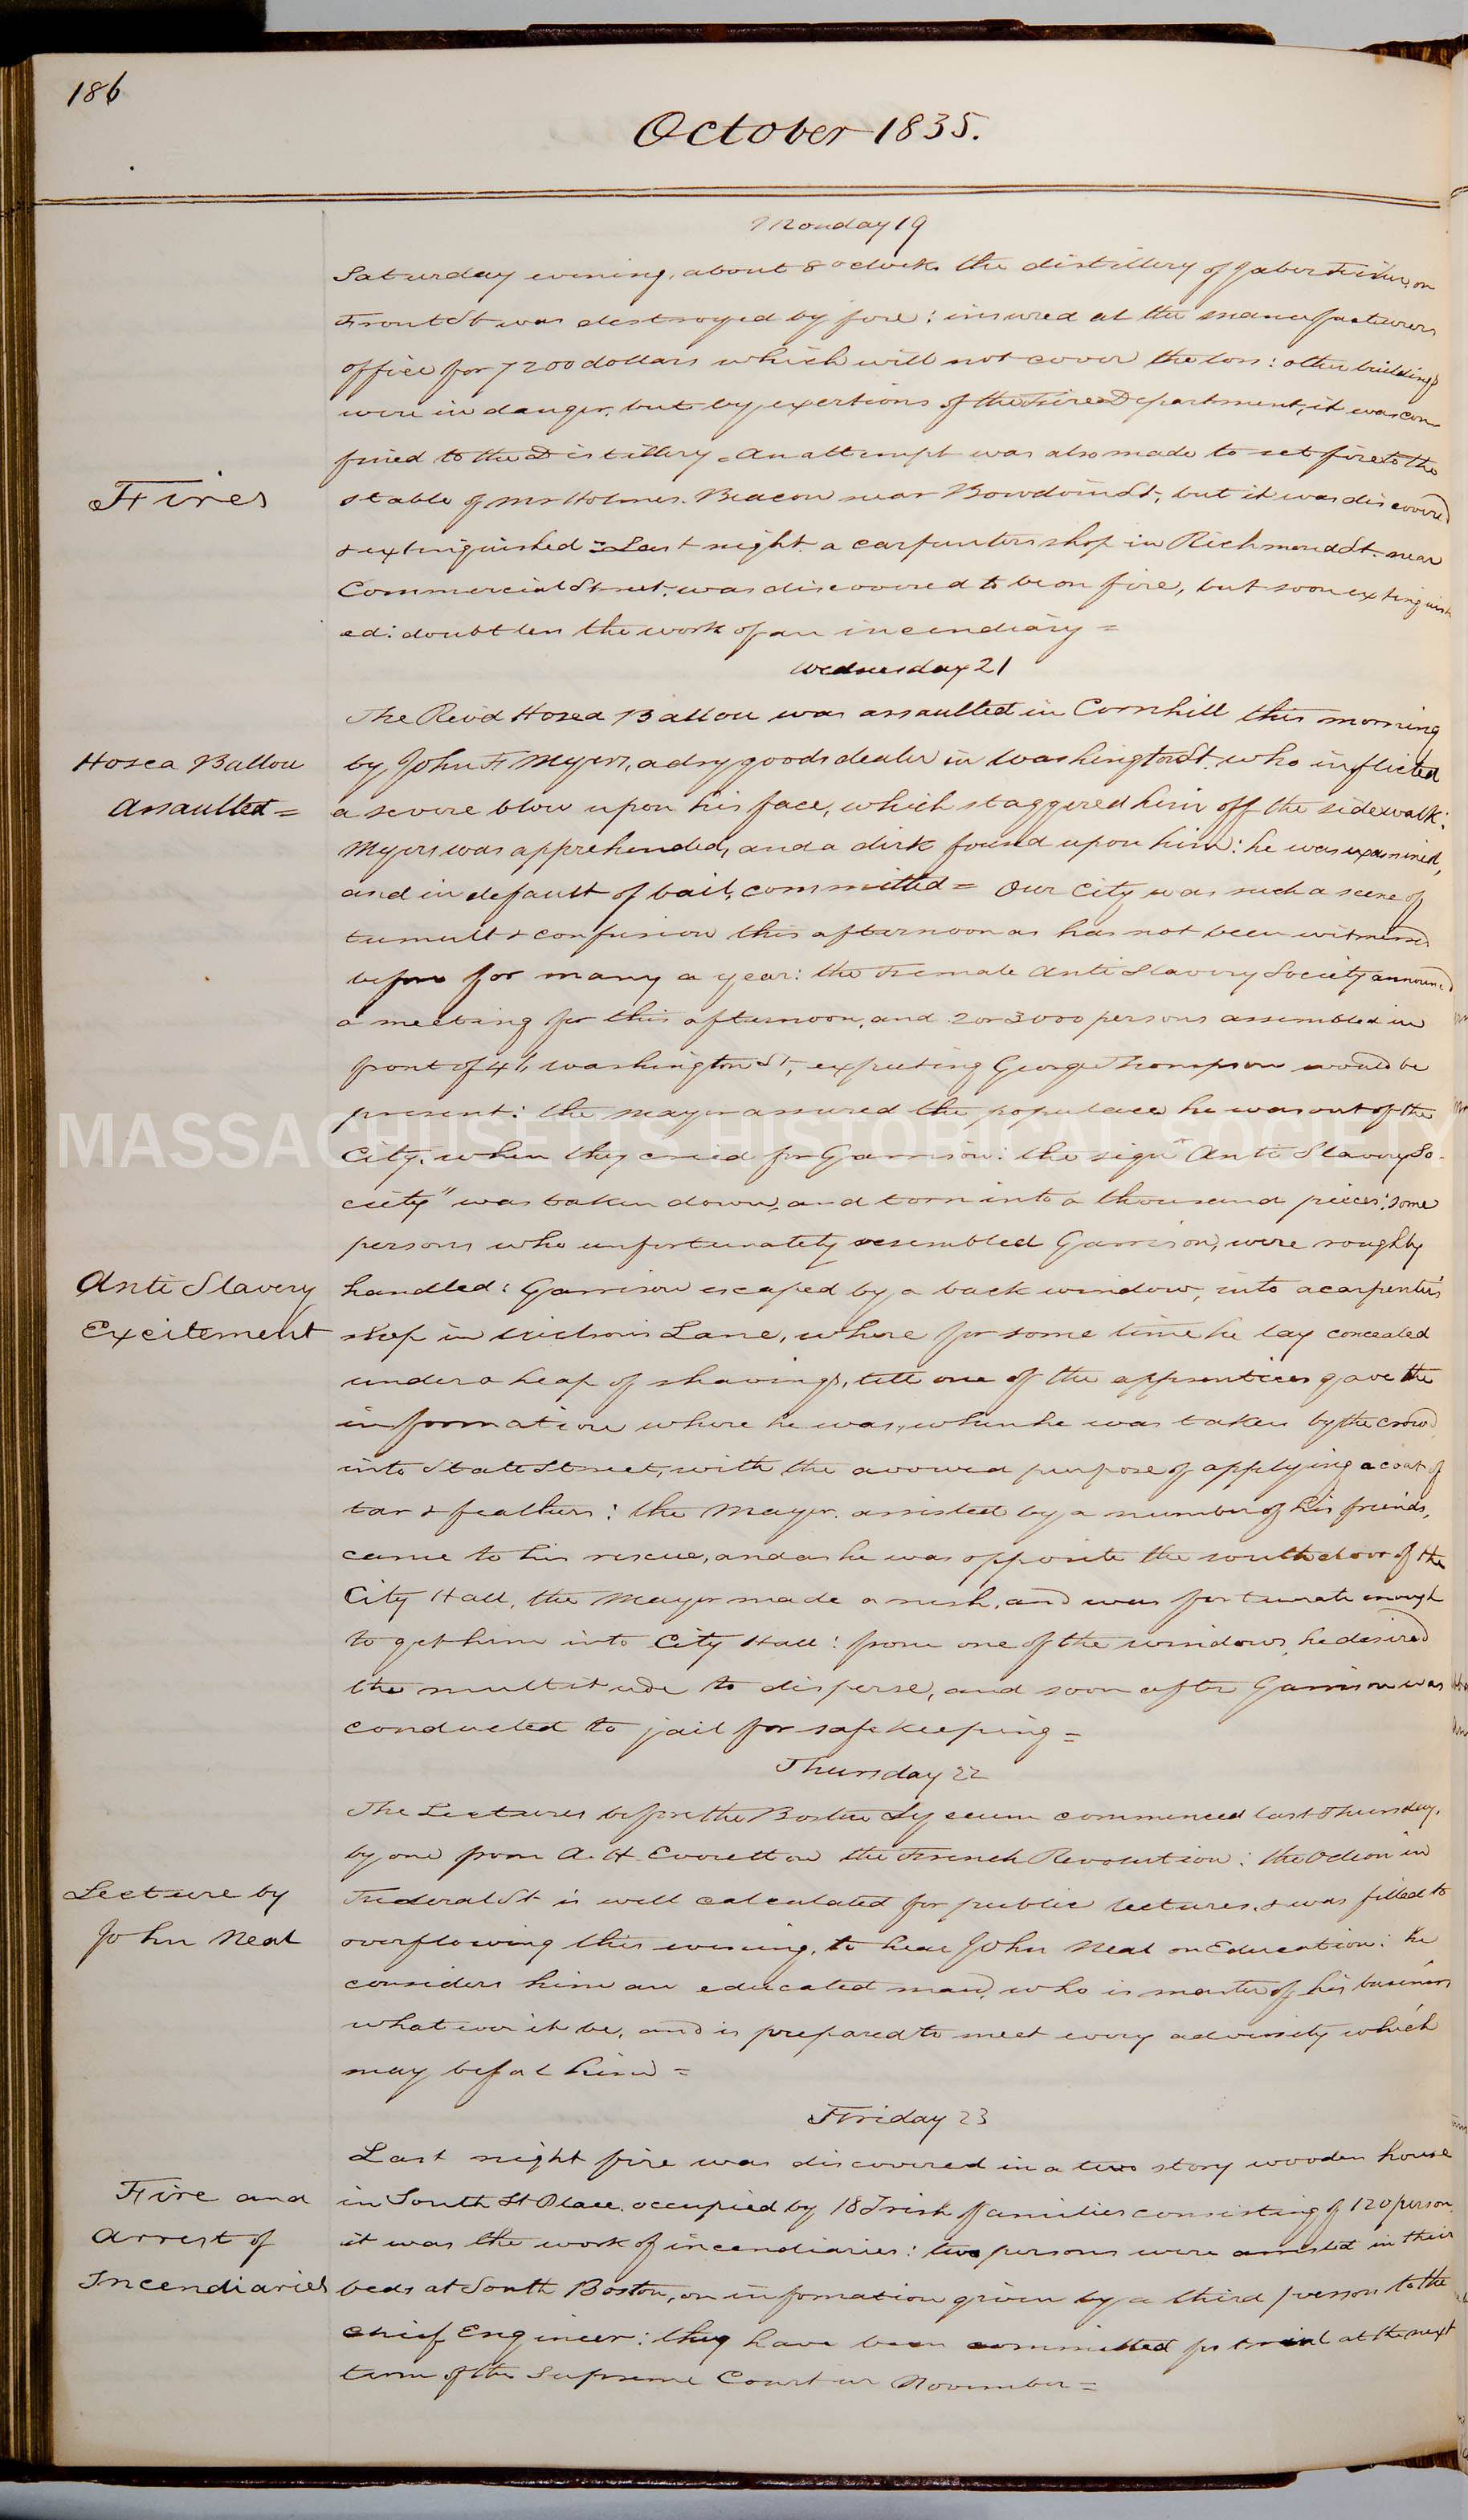 186
October 1835.
Monday 19
Saturday evening, about 8 oclock the distillery of Jaber Fisher, on
Front St was destroyed by fire: insured at the manufacturers
office for 7200 dollars which will not cover the loss: other buildings
were in danger, but by exertions of the Fire Department, it was con-
fined to the Distillery = An attempt was also made to set fire to the
Fires
stable of Mr Holmes Beacon near Bowdoin St, but it was discovered
& extinguished = Last night a carpenters shop in Richmond St. near
Commercial Street, was discovered to be on fire, but soon extinguish
ed: doubtless the work of an incendiary =
Wednesday 21
The Revd Hosea Ballou was assaulted in Cornhill this morning
Hosea Ballou
by John F Myers, a dry goods dealer in Washington St. who inflicted
assaulted =
a severe blow upon his face, which staggered him off the sidewalk:
Myers was apprehended, and a dirk found upon him: he was examined,
and in default of bail, committed = Our City was such a scene of
tumult & confusion this afternoon as has not been witnessed
before for many a year: the Female Anti Slavery Society announced
a meeting for this afternoon, and 2 or 3000 persons assembled in
front of 46 Washington St, expecting George Thompson would be
present: the mayor assured the populace he was out of the
City, when they cried for Garrison: the sign "Anti Slavery So-
ciety" was taken down, and torn into a thousand pieces: some
persons who unfortunately resembled Garrison, were roughly
Anti Slavery
handled: Garrison escaped by a back window, into a carpenter's
Excitement
shop in Wilson's Lane, where for some time he lay concealed
under a heap of shavings, till one of the apprentices gave the
information where he was, when he was taken by the crowd
into State Street, with the avowed purpose of applying a coat of
tar & feathers: the Mayor, assisted by a number of his friends,
came to his rescue, and as he was opposite the south door of the
City Hall, the Mayor made a rush, and was fortunate enough
to get him into City Hall: from one of the windows, he desired
the multitude to disperse, and soon after Garrison was
conducted to jail for safe keeping =
Thursday 22
The Lectures before the Boston Lyceum commenced last Thursday,
by one from A. H Everett on the French Revolution: the Odeon in
Lecture by
Federal St is well calculated for public lectures, & was filled to
John Neal
overflowing this evening, to hear John Neal on Education: he
considers him an educated man, who is master of his business
what ever it be, and is prepared to meet every adversity which
may befal him =
Friday 23
Last night fire was discovered in a two story wooden house
Fire and
in South St Place, occupied by 18 Irish families consisting of 120 person
arrest of
it was the work of incendiaries: two persons were arrested in their
Incendiaries
beds at South Boston, on information given by a third person to the
chief Engineer: they have been committed for trial at the next
term of the Supreme Court in November =
MASSACHUSETTS HISTORICAL SOCIETY